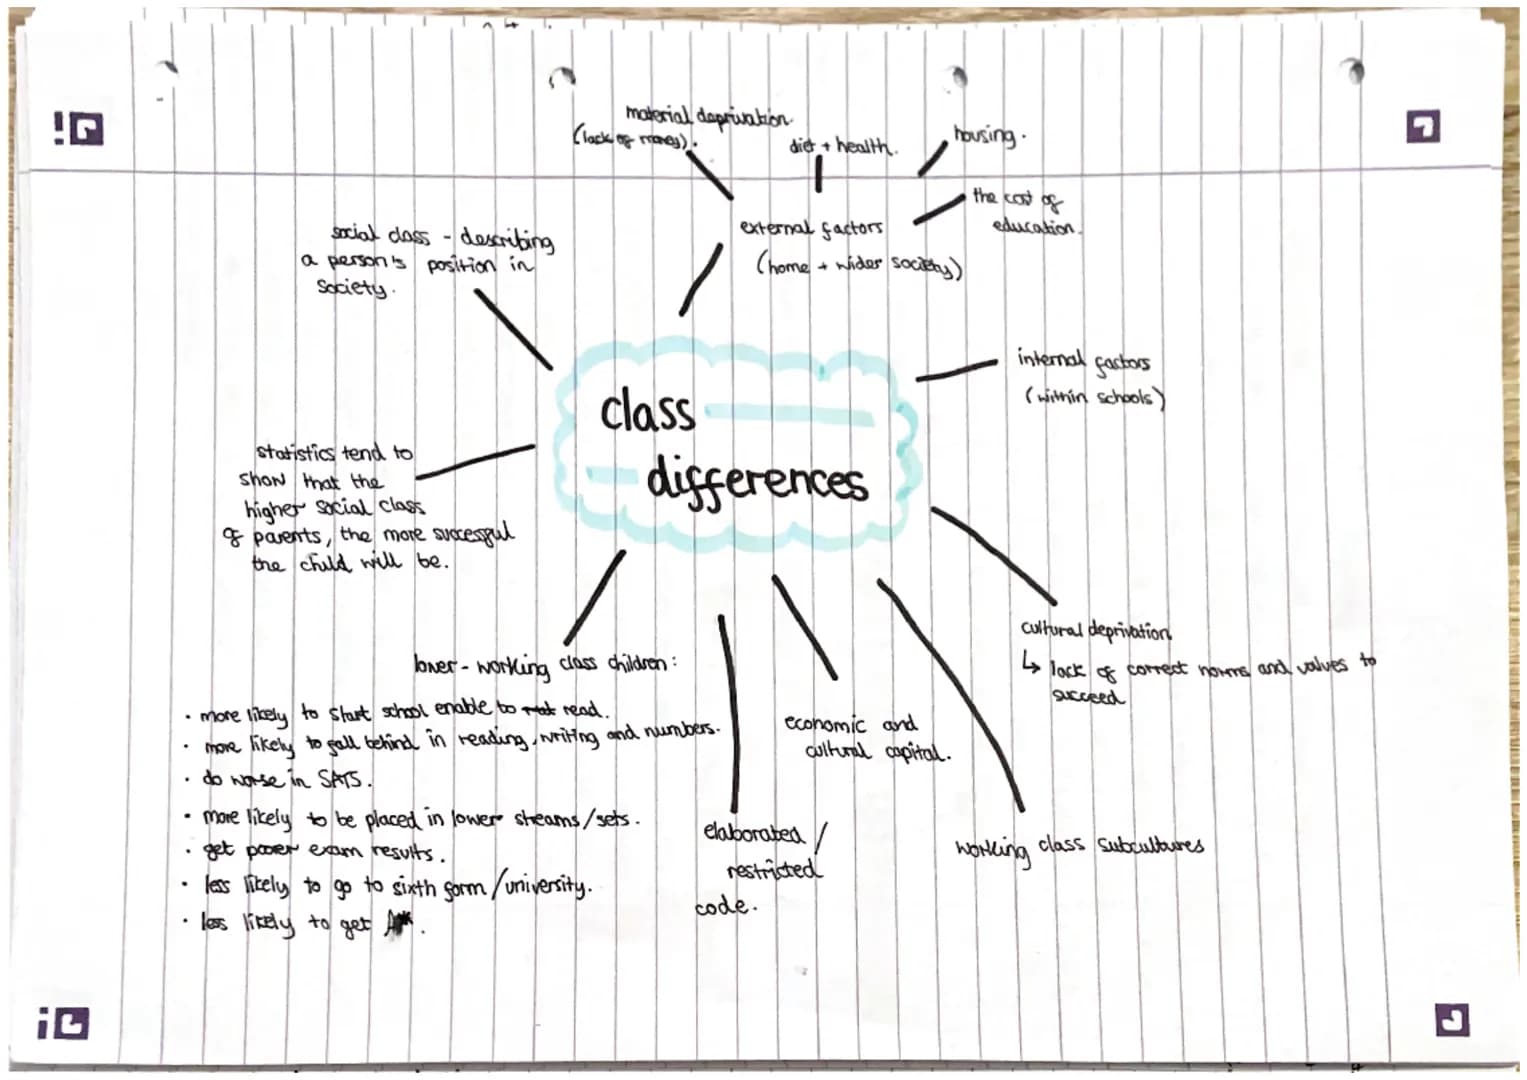 material deprivation.
(lack of money).
diet + health.
housing.
the cost of
education.
external factors
(home + wider society)
social class - describing
a person's position in
society.
internal factors
(within schools)
class
differences
statistics tend to
show that the
higher social class
of parents, the more successful
the child will be.
cultural deprivation
↳ lack of correct norms and values to
succeed
lower-working class children:
• more likely to start school enable to read.
• more likely to fall behind in reading, writing and numbers.
• do worse in SATS.
• more likely to be placed in lower streams/sets.
• get poorer exam results.
• less likely to go to sixth form/university.
• less likely to get
economic and
cultural capital.
elaborated/
restricted
code.
working class subcultures